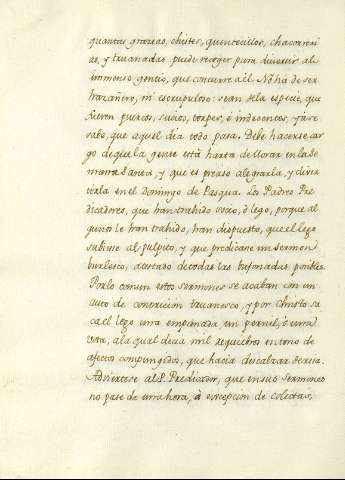 quantas gracias, chistes, quentecillos, chacorreri
as, y truanadas puede recoger para divertir al
immenso gentio, que concurre a él. No há de ser
hazañero, ni escrupuloso: sean dela especie, que
fueren puercos, sucios, torpes, è indecentes, yà se
sabe, que aquel dia todo pasa. Debe hacerse car
go deque la gente está harta de llorar en la Se
mana Santa, y que es preciso alegrarla, y diver
tirla en el Domingo de Pasqua. Los Padres Pre
dicadores, que han trahido socio, ò lego, porque al
gunos le han trahido, han dispuesto, que el lego
subiese al pulpito, y que predicase un sermon
burlesco, atestado de todas las bufonadas posibles.
Porlo comun estos sermones se acaban con un
auto de contricion truanesco, y por Christo sa
ca el lego una empanada, un pernil, ò una
bota, ala qual decia mil requiebros en tono de
afectos compungidos, que hacia descalzar de risa.
Adviertese al P. Predicador, que en sus sermones
no pase de una hora, à excepcion de colectas,